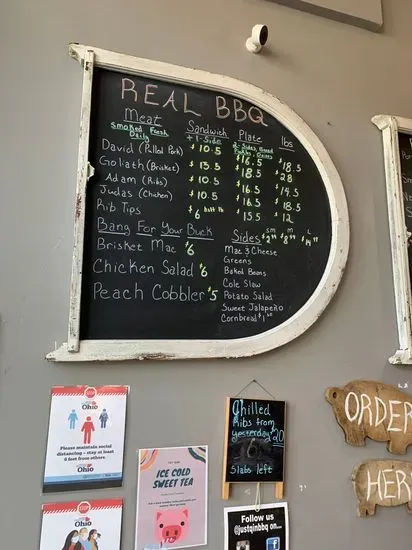 REAL BBQ
Meat Sandwich Plate lbs
Smoked Fresh Daily + 1-Side 2-Sides, Bread Pickle, Onions
David (Pulled Pork) $10.5 $16.5 $18.5
Goliath (Brisket) $13.5 $18.5 $28
Adam (Ribs) $10.5 $16.5 $14.5
Judas (Chicken) $10.5 $16.5 $18.5
Rib Tips $6 half lb $15.5 $12
Bang For Your Buck
Brisket Mac $6
Chicken Salad $6
Peach Cobbler $5
Sides SM M L
Mac & Cheese
Greens
Baked Beans
Cole Slaw
Potato Salad
Sweet Jalapeño
Cornbread $1.50
STOP
Ohio
Please maintain social
distancing – stay at least
6 feet from others.
Ohio
STOP
Ohio
ICE COLD
SWEET TEA
Chilled
Ribs from
yesterday $20
Slabs left
Follow us
@justqinbbq on...
ORDER
HER